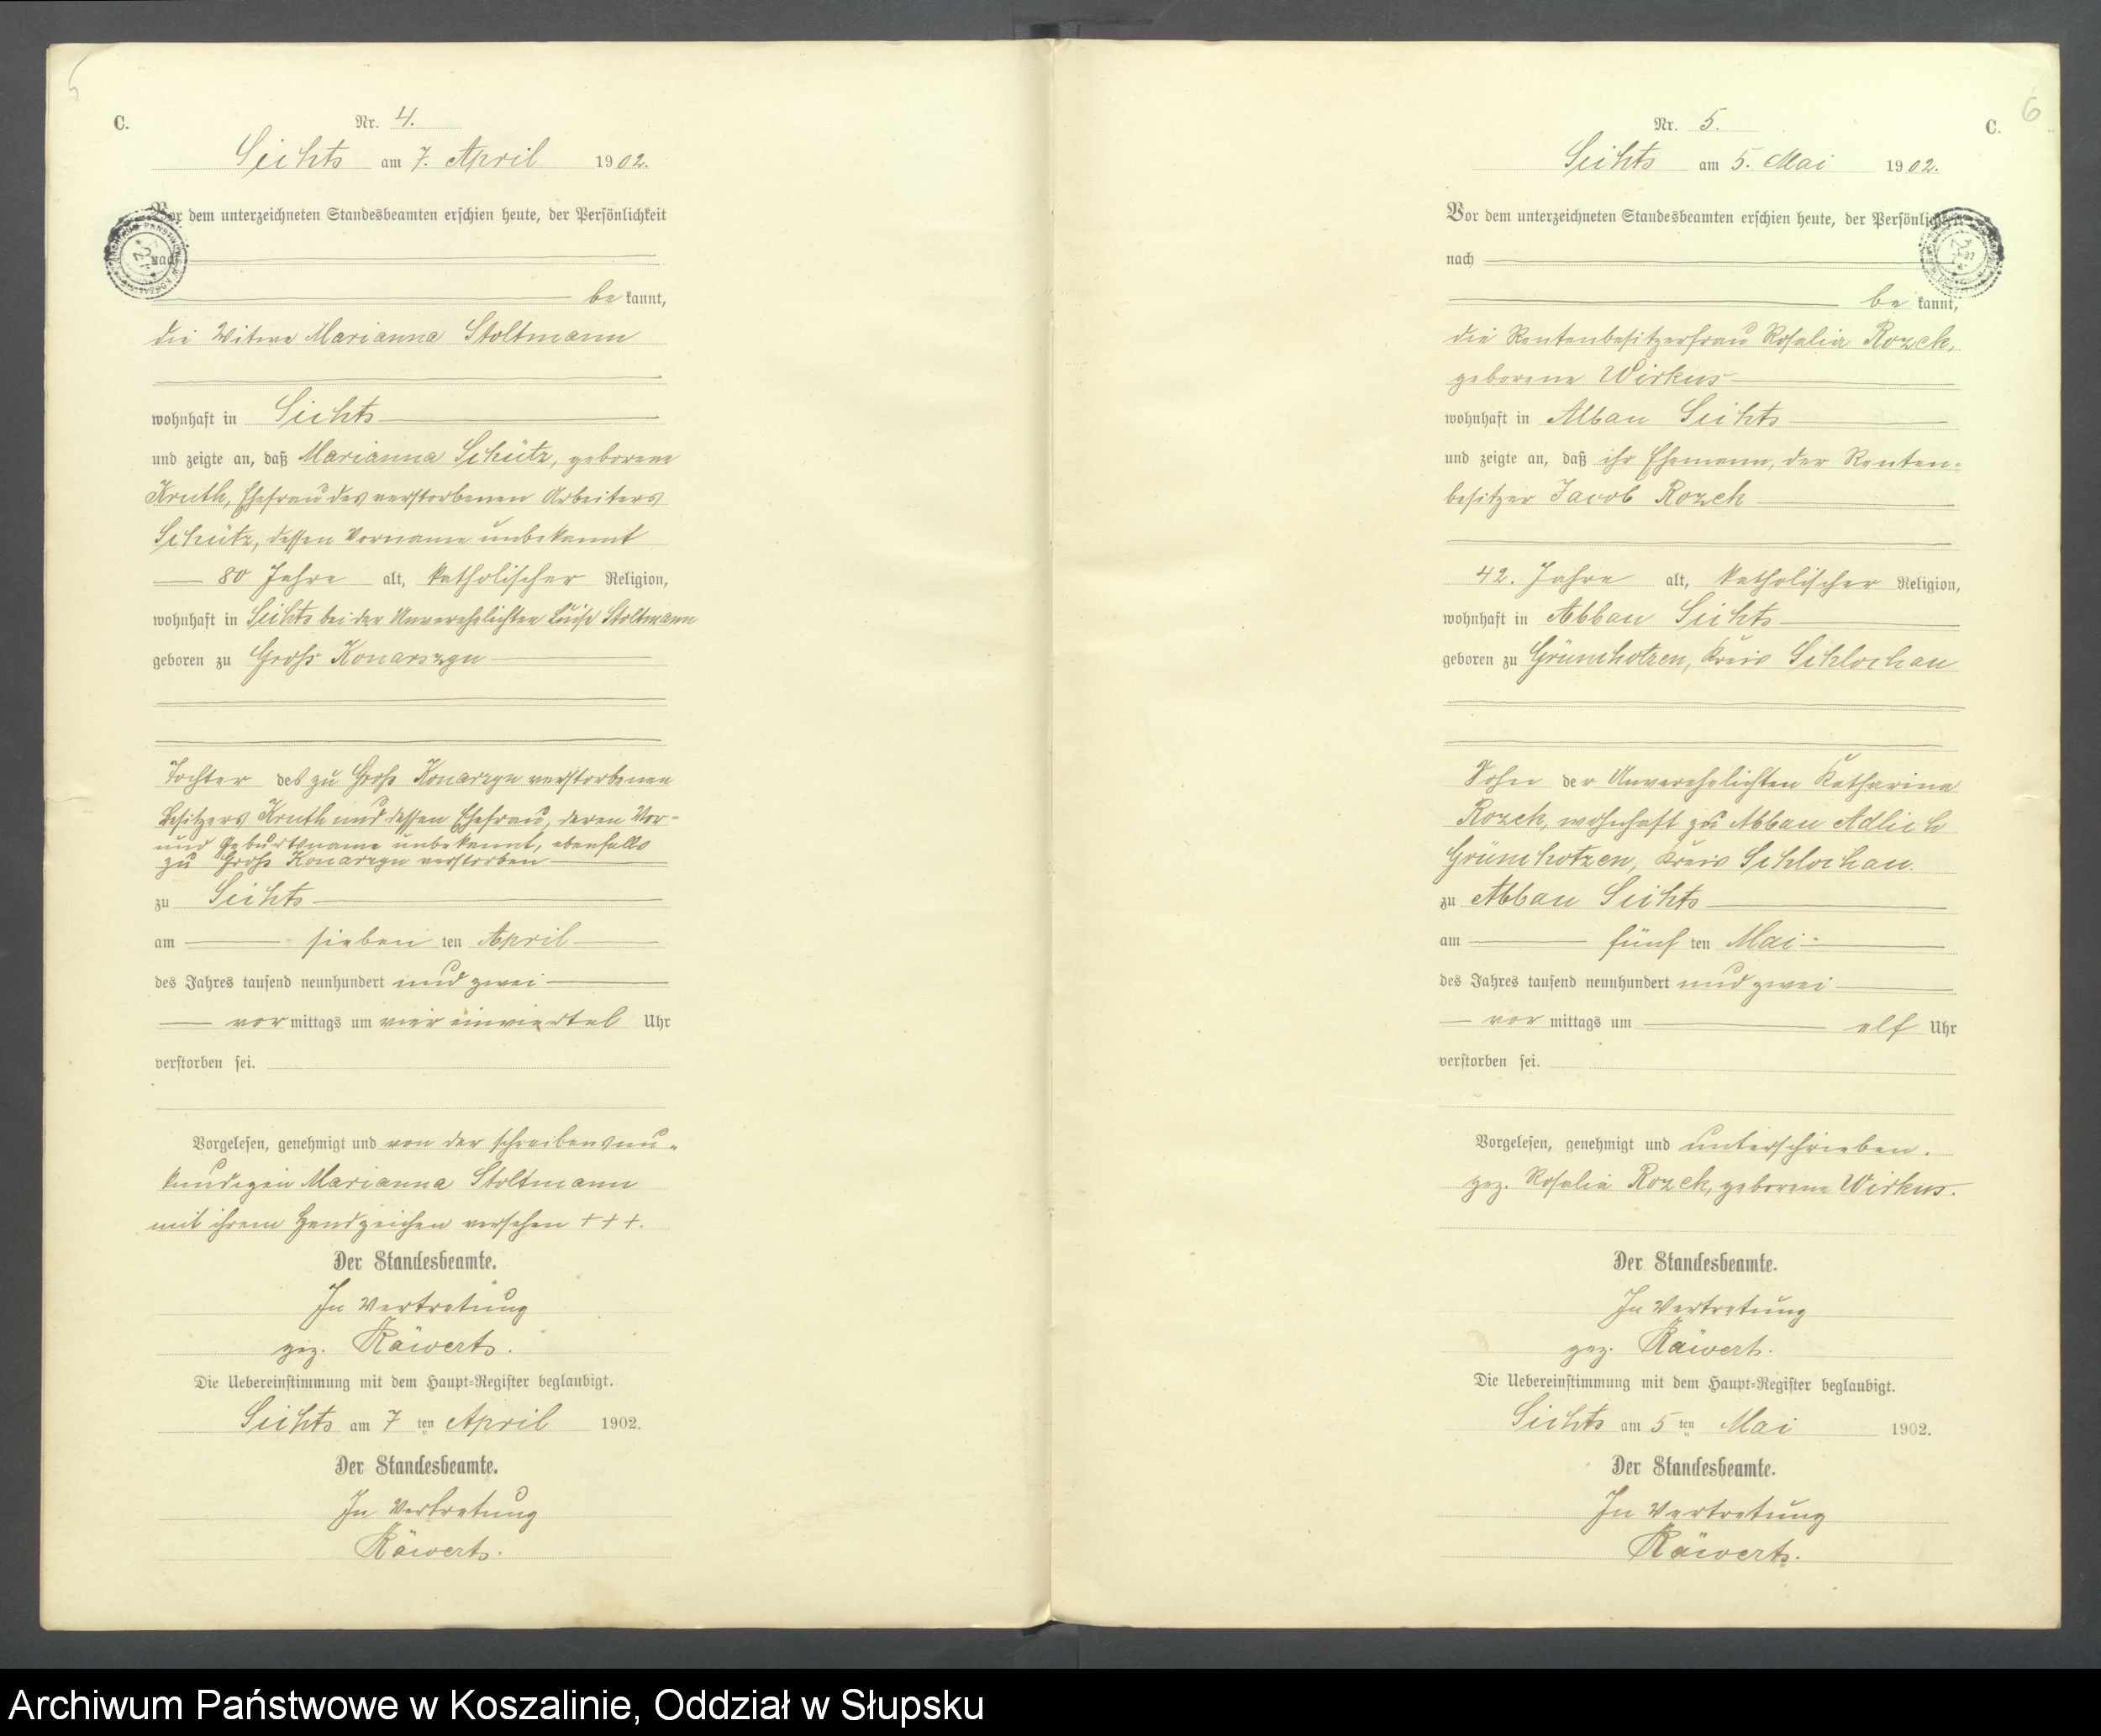 5
C.
Nr. 4.
Sichts am 7. April 1902.
Vor dem unterzeichneten Standesbeamten erschien heute, der Persönlichkeit
nach
be kannt,
die Witwe Marianna Stoltmann
wohnhaft in Sichts
und zeigte an, daß Marianna Schütz, geborene
Kruth, Ehefrau des verstorbenen Arbeiters
Schütz, dessen Vorname unbekannt
80 Jahre alt, katholischer Religion,
wohnhaft in Sichts bei der Unverehelichten Luise Stoltmann
geboren zu Groß Konarszyn
Tochter des zu Groß Konarzyn verstorbenen
Besitzers Kruth und dessen Ehefrau, deren Vor-
und Geburtsname unbekannt, ebenfalls
zu Groß Konarzyn verstorben
zu Sichts
am sieben ten April
des Jahres tausend neunhundert und zwei
vor mittags um vier einviertel Uhr
verstorben sei.
Vorgelesen, genehmigt und von der schreibensun-
kundigen Marianna Stoltmann
mit ihrem Handzeichen versehen +++.
Der Standesbeamte.
In Vertretung
gez. Räwerts.
Die Uebereinstimmung mit dem Haupt-Register beglaubigt.
Sichts am 7 ten April 1902.
Der Standesbeamte.
In Vertretung
Räwerts.
6
Nr. 5.
C.
Sichts am 5. Mai 1902.
Vor dem unterzeichneten Standesbeamten erschien heute, der Persönlichkeit
nach
be kannt,
die Rentenbesitzerfrau Rosalia Rozek,
geborene Wirkus
wohnhaft in Abbau Sichts
und zeigte an, daß ihr Ehemann, der Renten-
besitzer Jacob Rozek
42. Jahre alt, katholischer Religion,
wohnhaft in Abbau Sichts
geboren zu Grünchotzen, Kreis Schlochau
Sohn der Unverehelichten Katharina
Rozek, wohnhaft zu Abbau Adlich
Grünchotzen, Kreis Schlochau.
zu Abbau Sichts
am fünf ten Mai
des Jahres tausend neunhundert und zwei
vor mittags um elf Uhr
verstorben sei.
Vorgelesen, genehmigt und unterschrieben.
gez. Rosalia Rozek, geborene Wirkus.
Der Standesbeamte.
In Vertretung
gez. Räwerts.
Die Uebereinstimmung mit dem Haupt-Register beglaubigt.
Sichts am 5 ten Mai 1902.
Der Standesbeamte.
In Vertretung
Räwerts.
Archiwum Państwowe w Koszalinie, Oddział w Słupsku